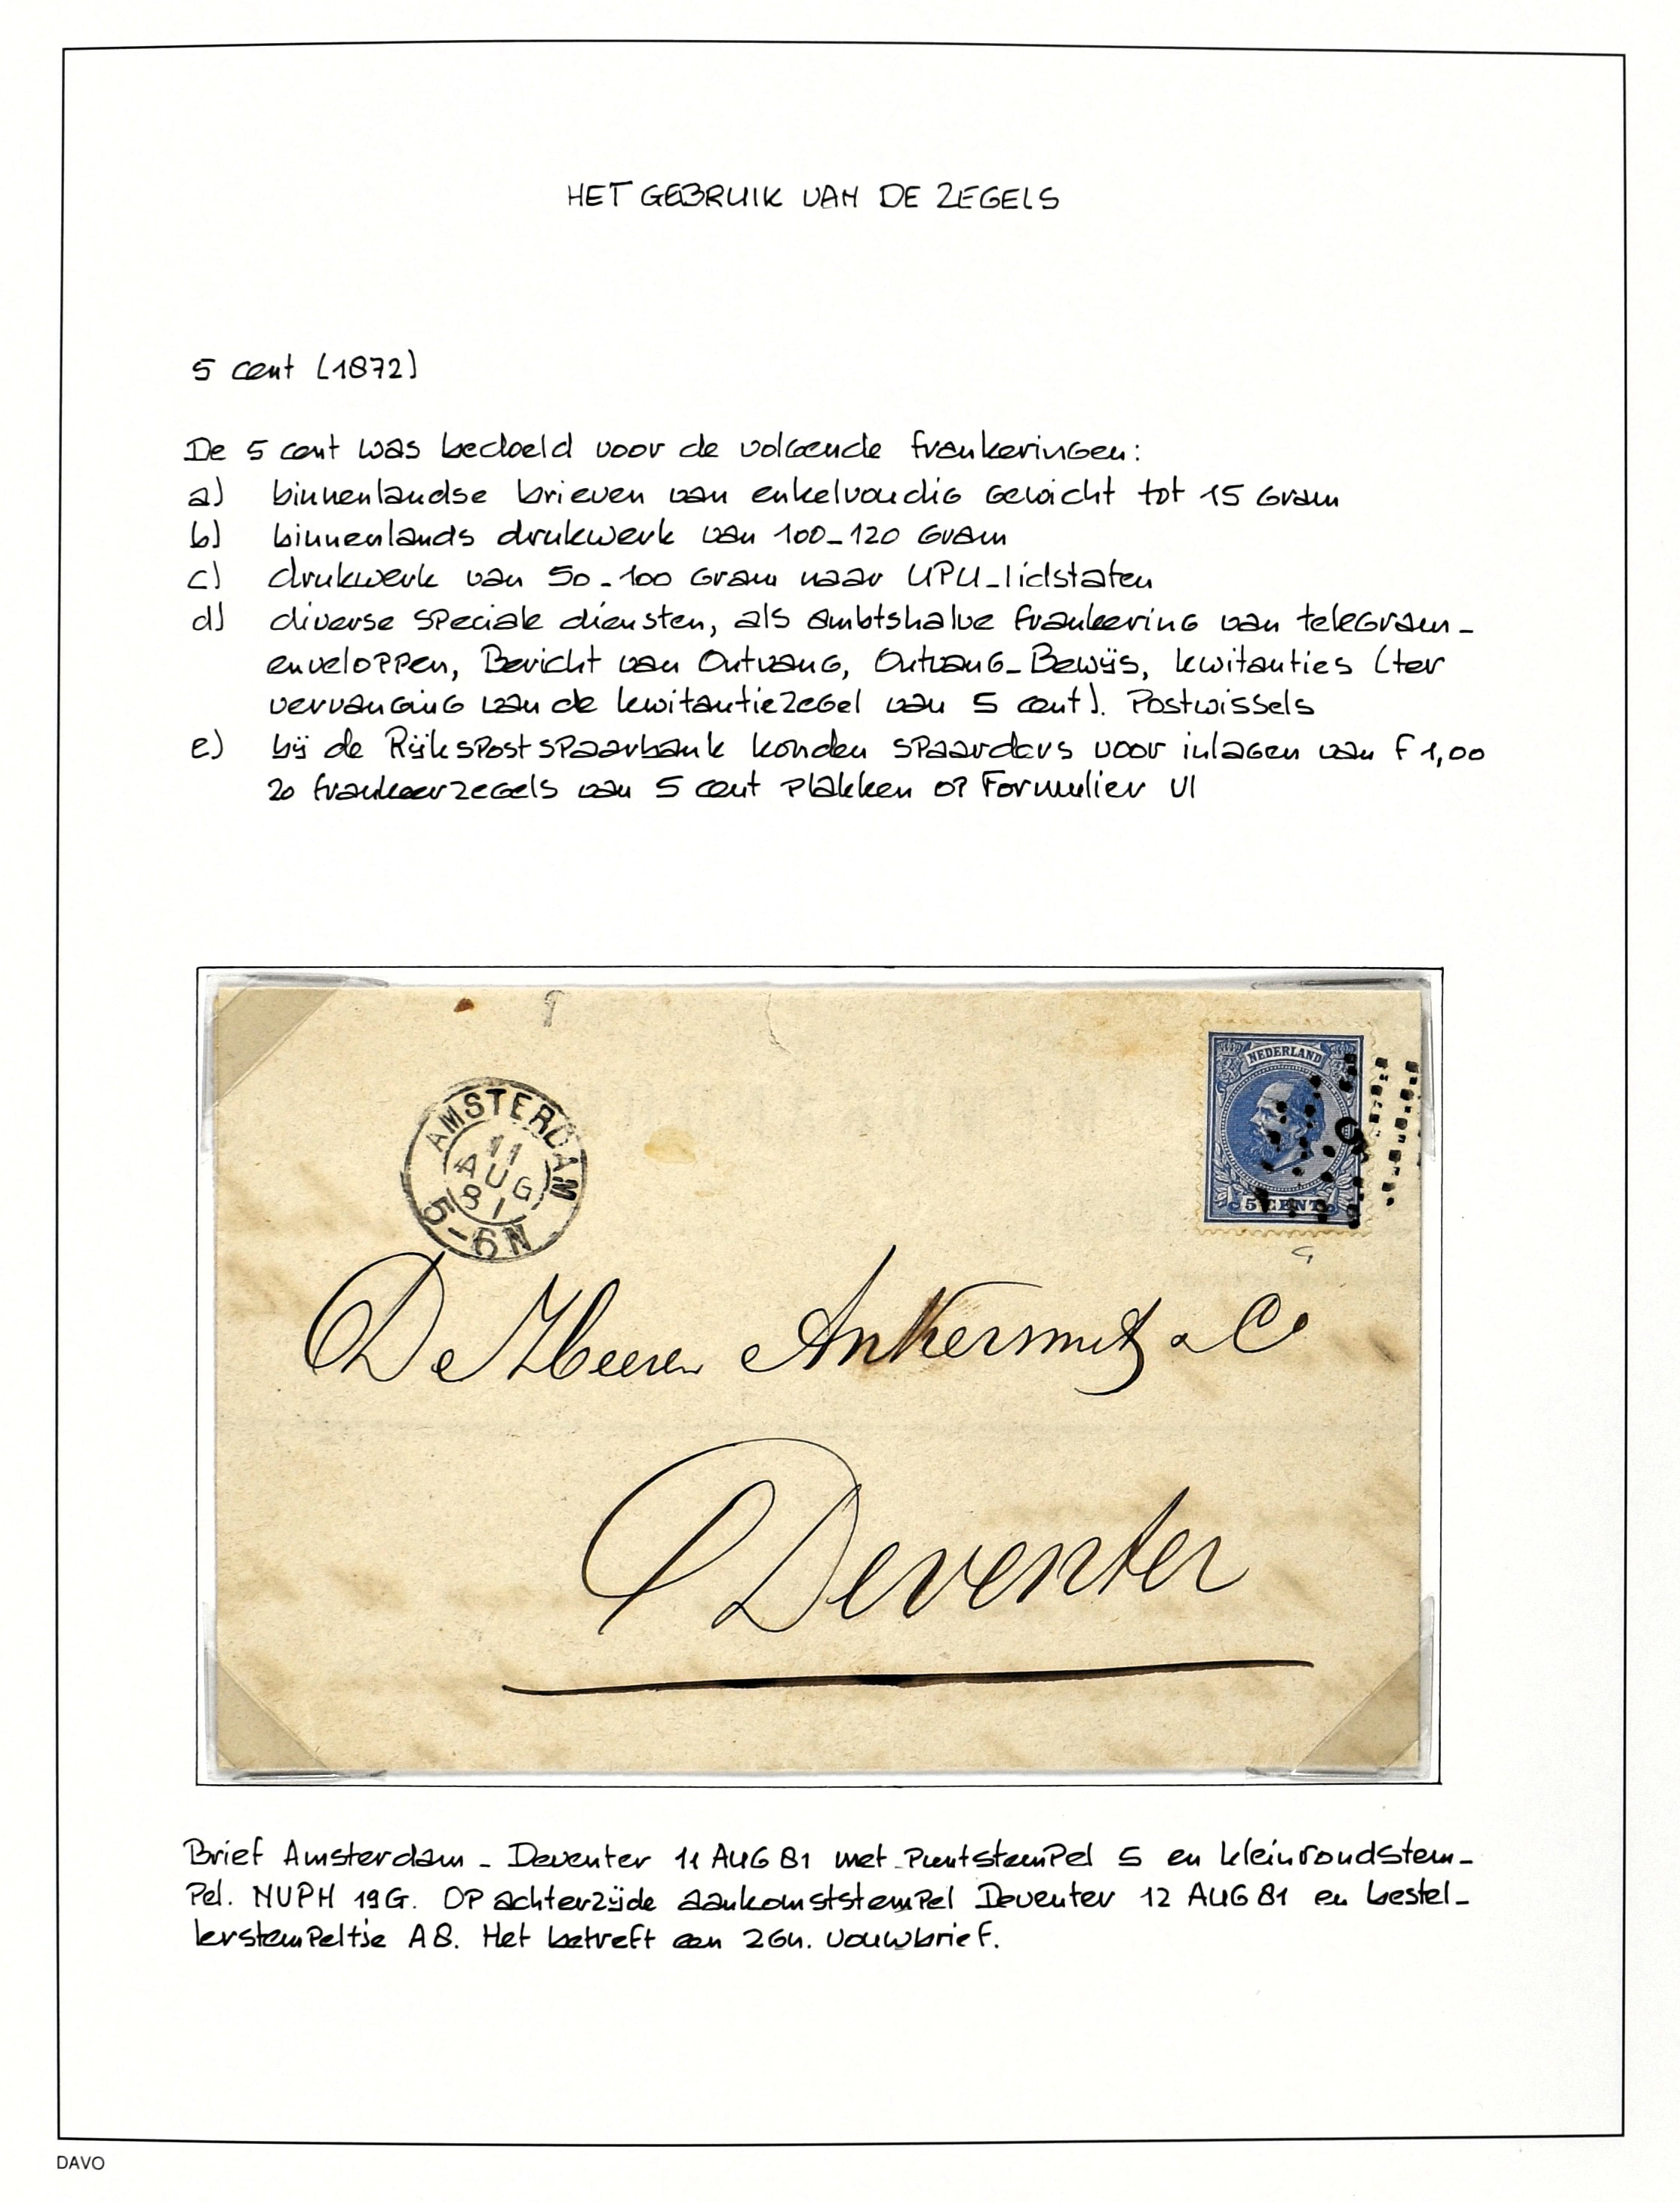 HET GEBRUIK VAN DE ZEGELS
5 cent (1872)
De 5 cent was bedoeld voor de volgende frankeringen:
a) binnenlandse brieven van enkelvoudig gewicht tot 15 gram
b) binnenlands drukwerk van 100-120 gram
c) drukwerk van 50-100 gram naar UPU-lidstaten
d) diverse speciale diensten, als ambtshalve frankering van telegram-
enveloppen, Bericht van Ontvang, Ontvang-Bewijs, kwitanties (ter
vervanging van de kwitantiezegel van 5 cent). Postwissels
e) bij de Rijkspostspaarbank konden spaarders voor inlagen van f 1,00
20 frankeerzegels van 5 cent plakken op Formulier VI
NEDERLAND
5 CENT
AMSTERDAM
11
AUG
81
5-6N
De Heeren Ankersmit & Co
Deventer
Brief Amsterdam - Deventer 11 AUG 81 met puntstempel 5 en kleinrondstem-
pel. NVPH 19G. Op achterzijde aankomststempel Deventer 12 AUG 81 en bestel-
lerstempeltje A8. Het betreft een 2GN. vouwbrief.
DAVO